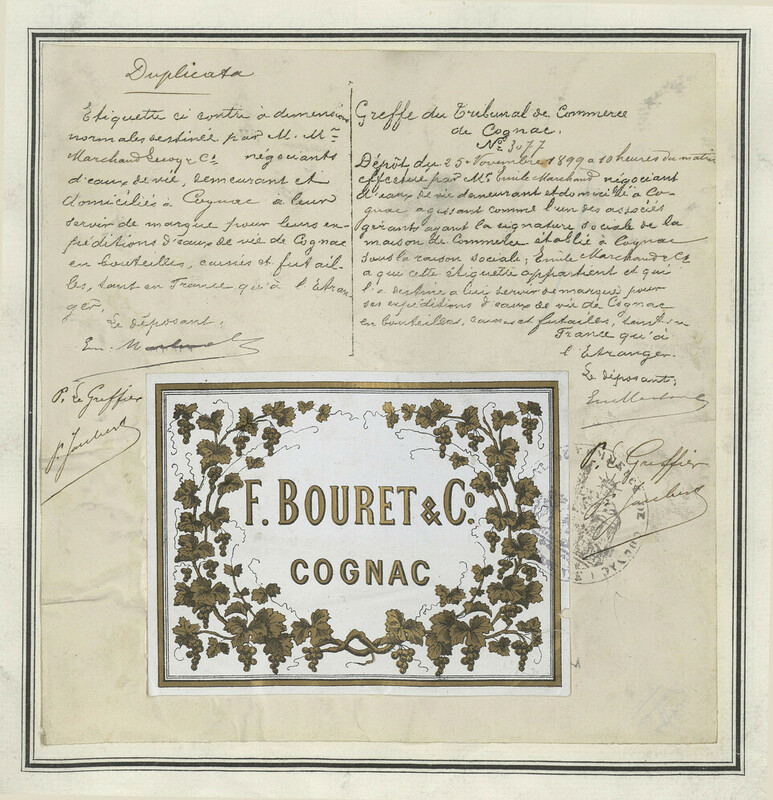 Duplicata
Etiquette ci contre à dimension
normales destinée par M. Mrs
Marchand & Cie négociants
d'eaux de vie, demeurant et
domiciliés à Cognac à leur
servir de marque pour leurs ex-
péditions d'eaux de vie de Cognac
en bouteilles, caisses et futail-
les, tant en France qu'à l'étran-
ger.
Le déposant,
P. Le Greffier
P. Jaubert
Greffe du Tribunal de Commerce
de Cognac.
No. 3077
Dépôt du 25 Novembre 1899 a 10 heures du matin
effectué par Mr. Emile Marchand négociant
d'eaux de vie demeurant et domicilié à Co-
gnac agissant comme l'un des associés
gérants ayant la signature sociale de la
maison de Commerce établie à Cognac
sous la raison sociale; Emile Marchand & Cie
a qui cette étiquette appartient et qui
l'a destine a lui servir de marque pour
ses expéditions d'eaux de vie de Cognac
en bouteilles, caisses et futailles, tant en
France qu'à
l'Etranger.
Le déposant;
P. Le Greffier
P. Jaubert
F. BOURET & Co.
COGNAC